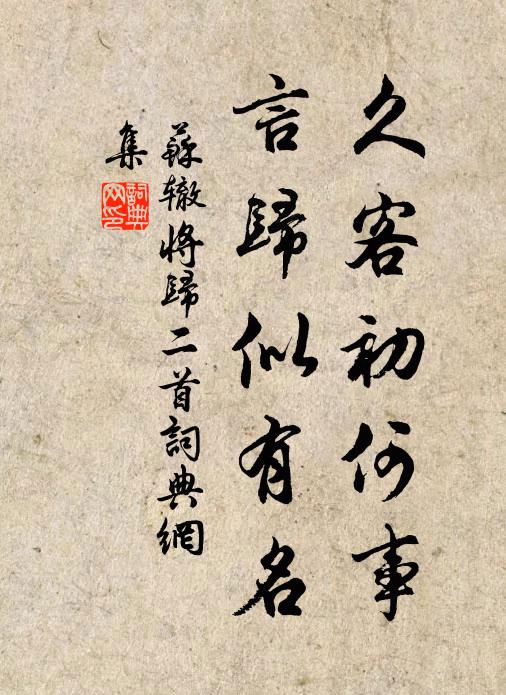 久客初何事
言歸似有名
蘇轍將歸二首詞典網
集
詞典
网印